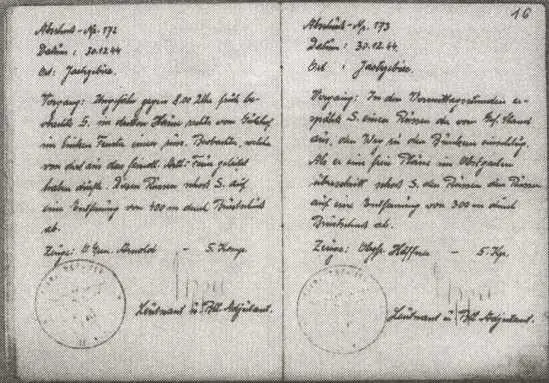 16
Abschuß-Nr. 172
Datum : 30.12.44
Ort : Jaszgebirge.
Vorgang: Ungefähr gegen 8.00 Uhr früh be-
obachte S. in dem Haus rechts von
im linken Fenster einen russ. Beobachter, welcher
von dort aus das feindl. Feuer geleitet
haben dürfte. Diesen Russen schoß S. auf
eine Entfernung von 400 m durch Brustschuß
ab.
Zeuge: Arnold - 5. Komp.
Leutnant u. Btl. Adjutant.
Abschuß-Nr. 173
Datum : 30.12.44.
Ort :
Vorgang: In den Vormittagsstunden er-
spähte S. einen Russen der von
aus, den Weg in die Bunkern einschlug.
Als er eine freie Fläche im Obstgarten
überschritt schoß S. den Russen
auf eine Entfernung von 300 m durch
Brustschuß ab.
Zeuge: Obgfr. Höffner - 5. Kp.
Leutnant u. Btl. Adjutant.